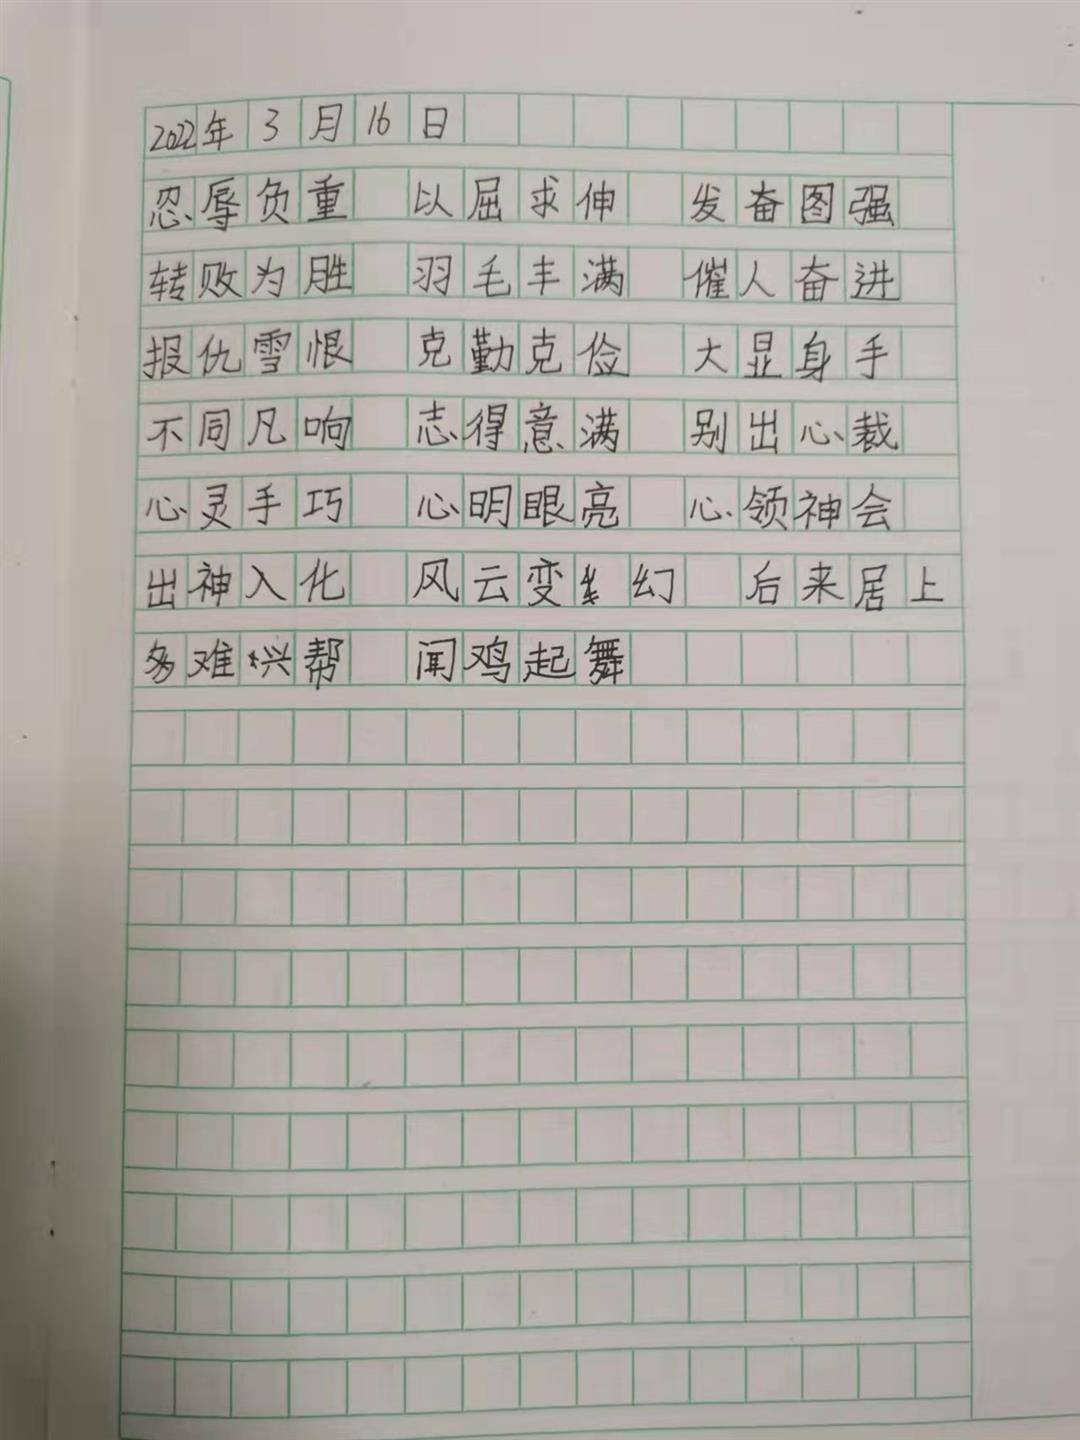 2022年3月16日
忍辱负重 以屈求伸 发奋图强
转败为胜 羽毛丰满 催人奋进
报仇雪恨 克勤克俭 大显身手
不同凡响 志得意满 别出心裁
心灵手巧 心明眼亮 心领神会
出神入化 风云变幻 后来居上
多难兴帮 闻鸡起舞